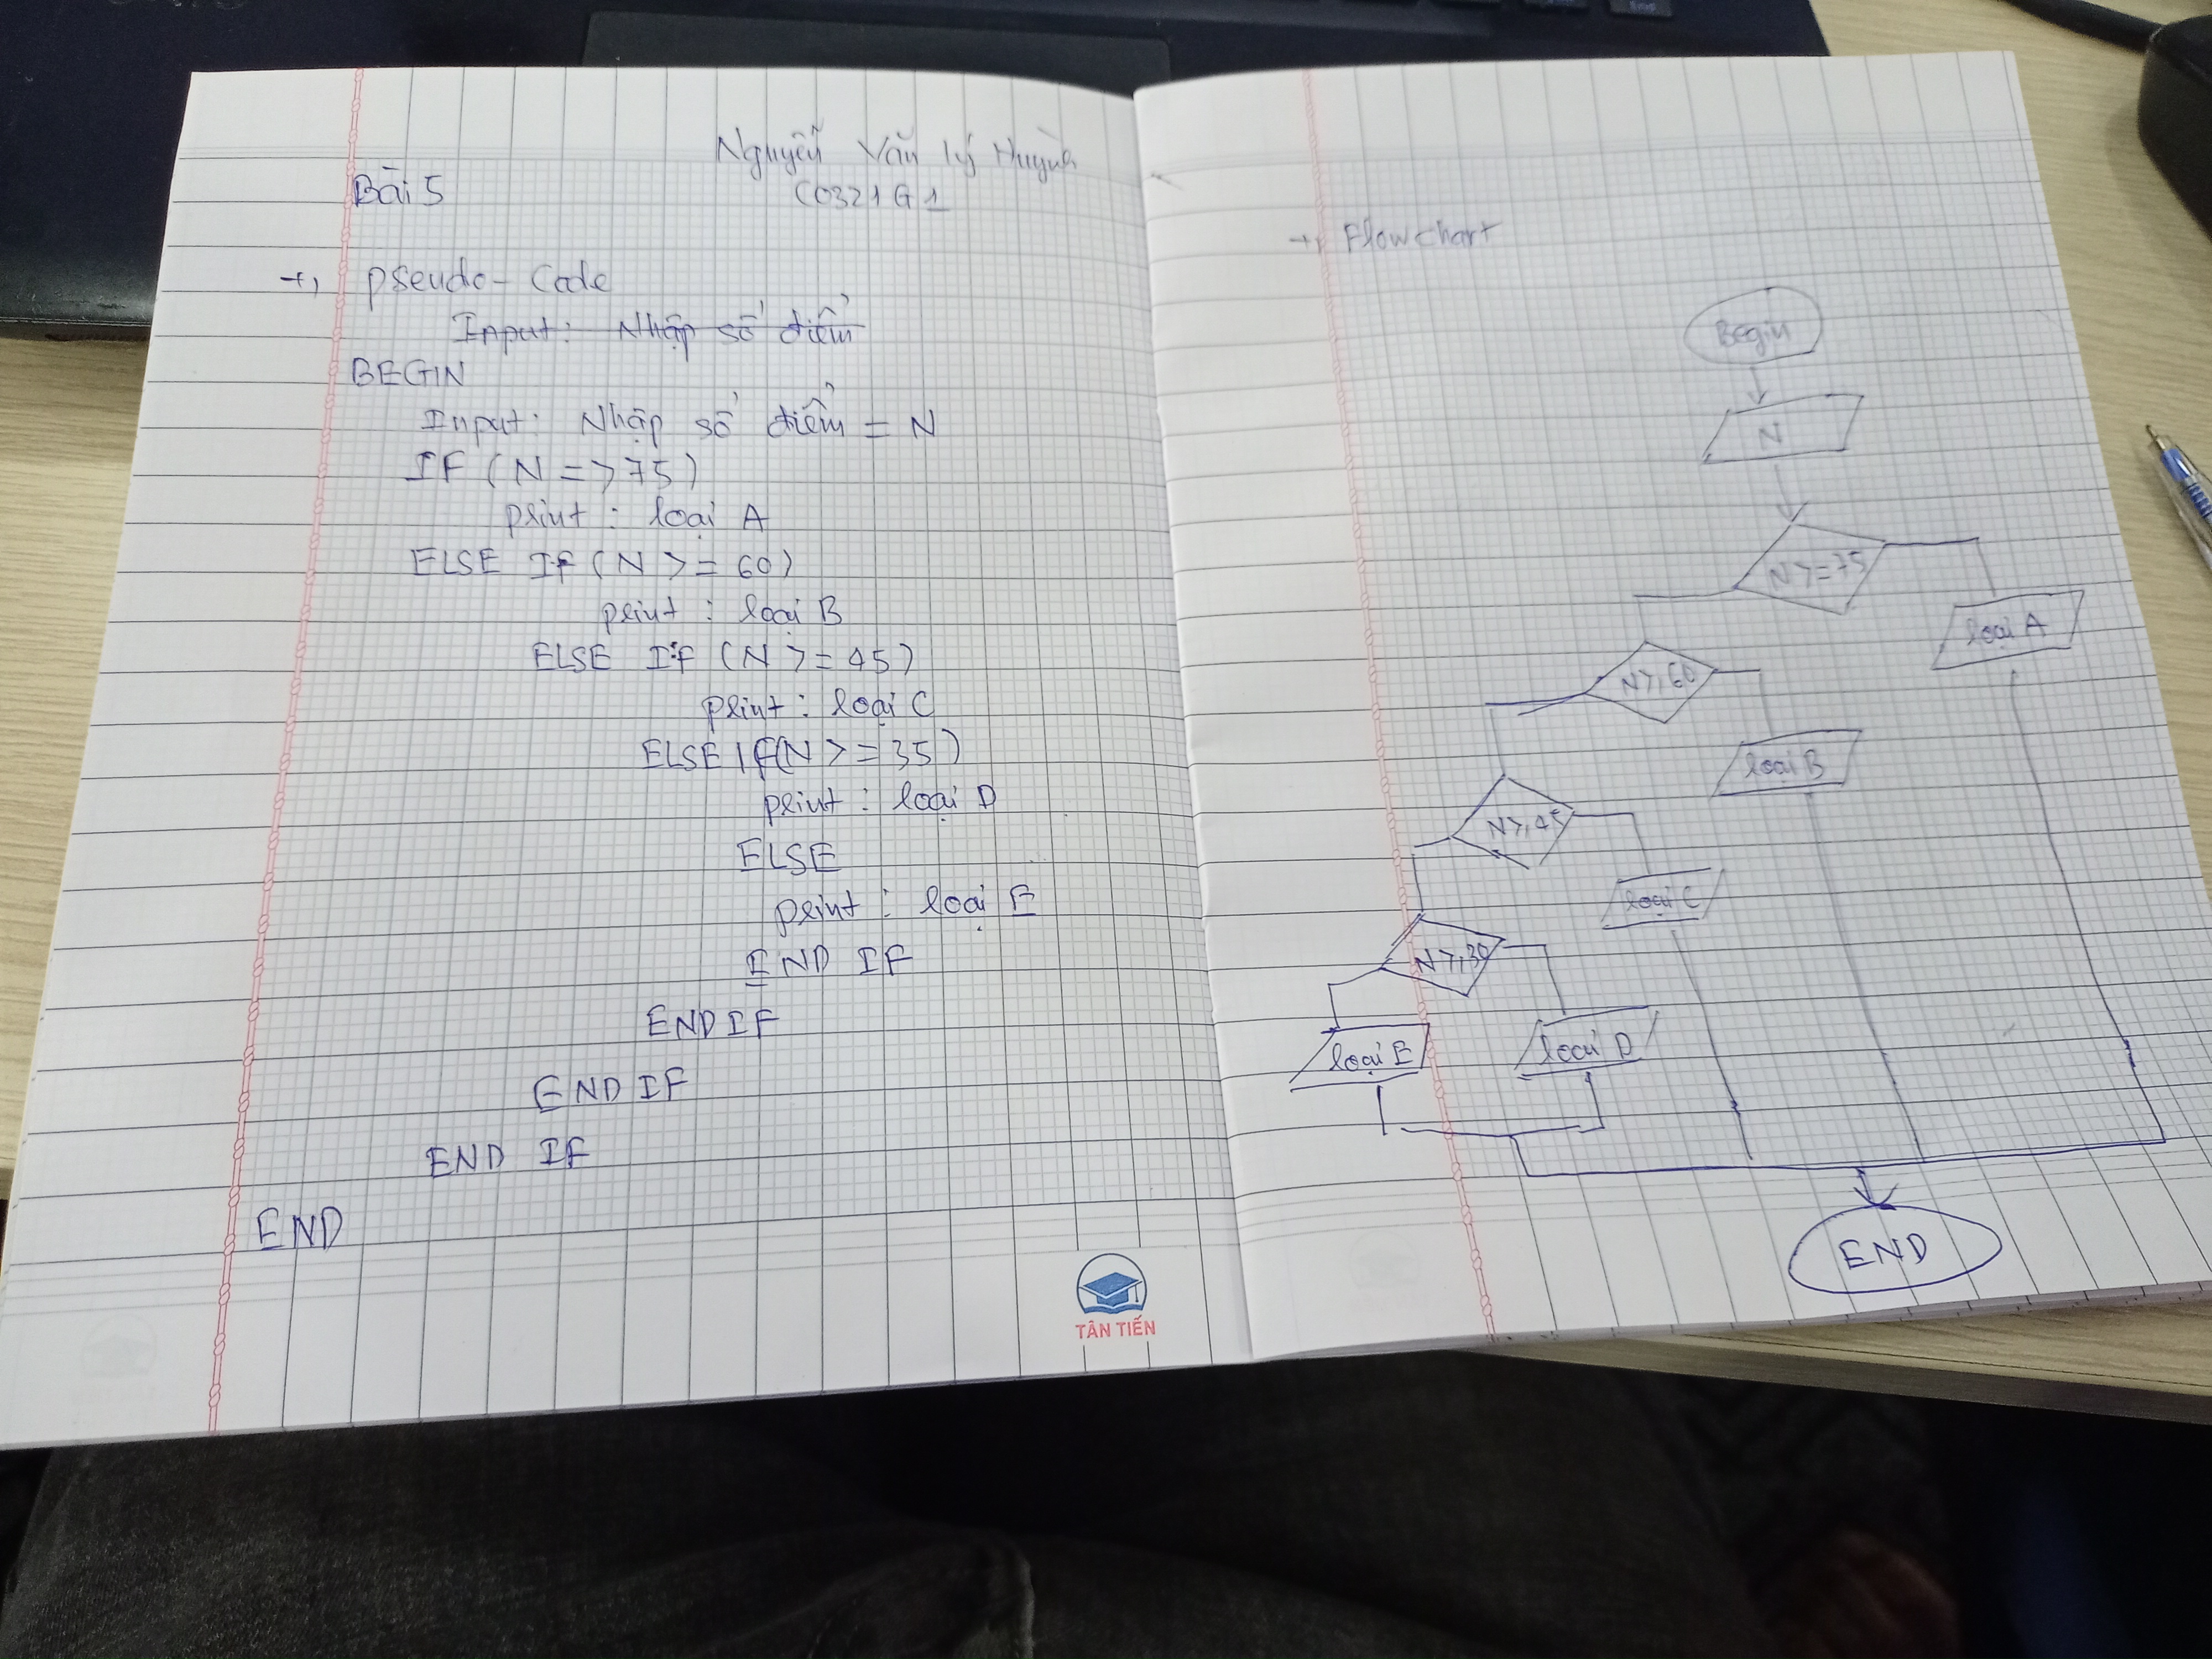 Nguyễn Văn Lý Huỳnh
C0321G1
Bài 5
+, pseudo-Code
Input: Nhập số điểm
BEGIN
Input: Nhập số điểm = N
IF (N => 75)
print : loại A
ELSE IF (N >= 60)
print : loại B
ELSE IF (N >= 45)
print : loại C
ELSE IF(N >= 35)
print : loại D
ELSE
print : loại E
END IF
END IF
END IF
END IF
END
TÂN TIẾN
+, Flowchart
Begin
N
N >= 75
loại A
N >, 60
loại B
N >, 45
loại C
N >, 30
loại E
loại D
END